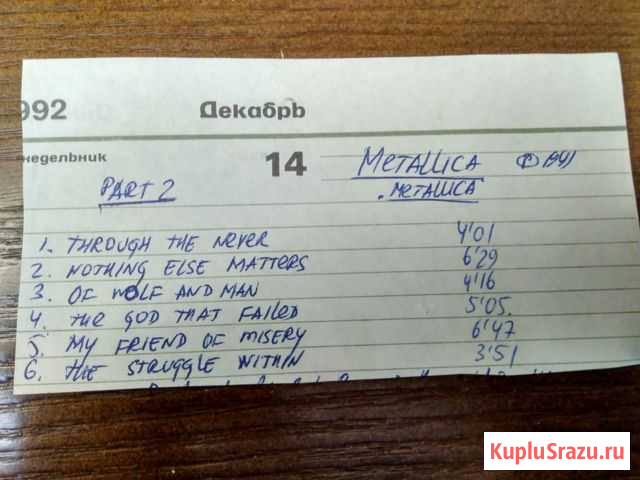 992 Декабрь
недельник 14 METALLICA ℗1991
PART 2 . METALLICA
1. THROUGH THE NEVER 4'01
2. NOTHING ELSE MATTERS 6'29
3. OF WOLF AND MAN 4'16
4. THE GOD THAT FAILED 5'05.
5. MY FRIEND OF MISERY 6'47
6. THE STRUGGLE WITHIN 3'51
KupluSrazu.ru